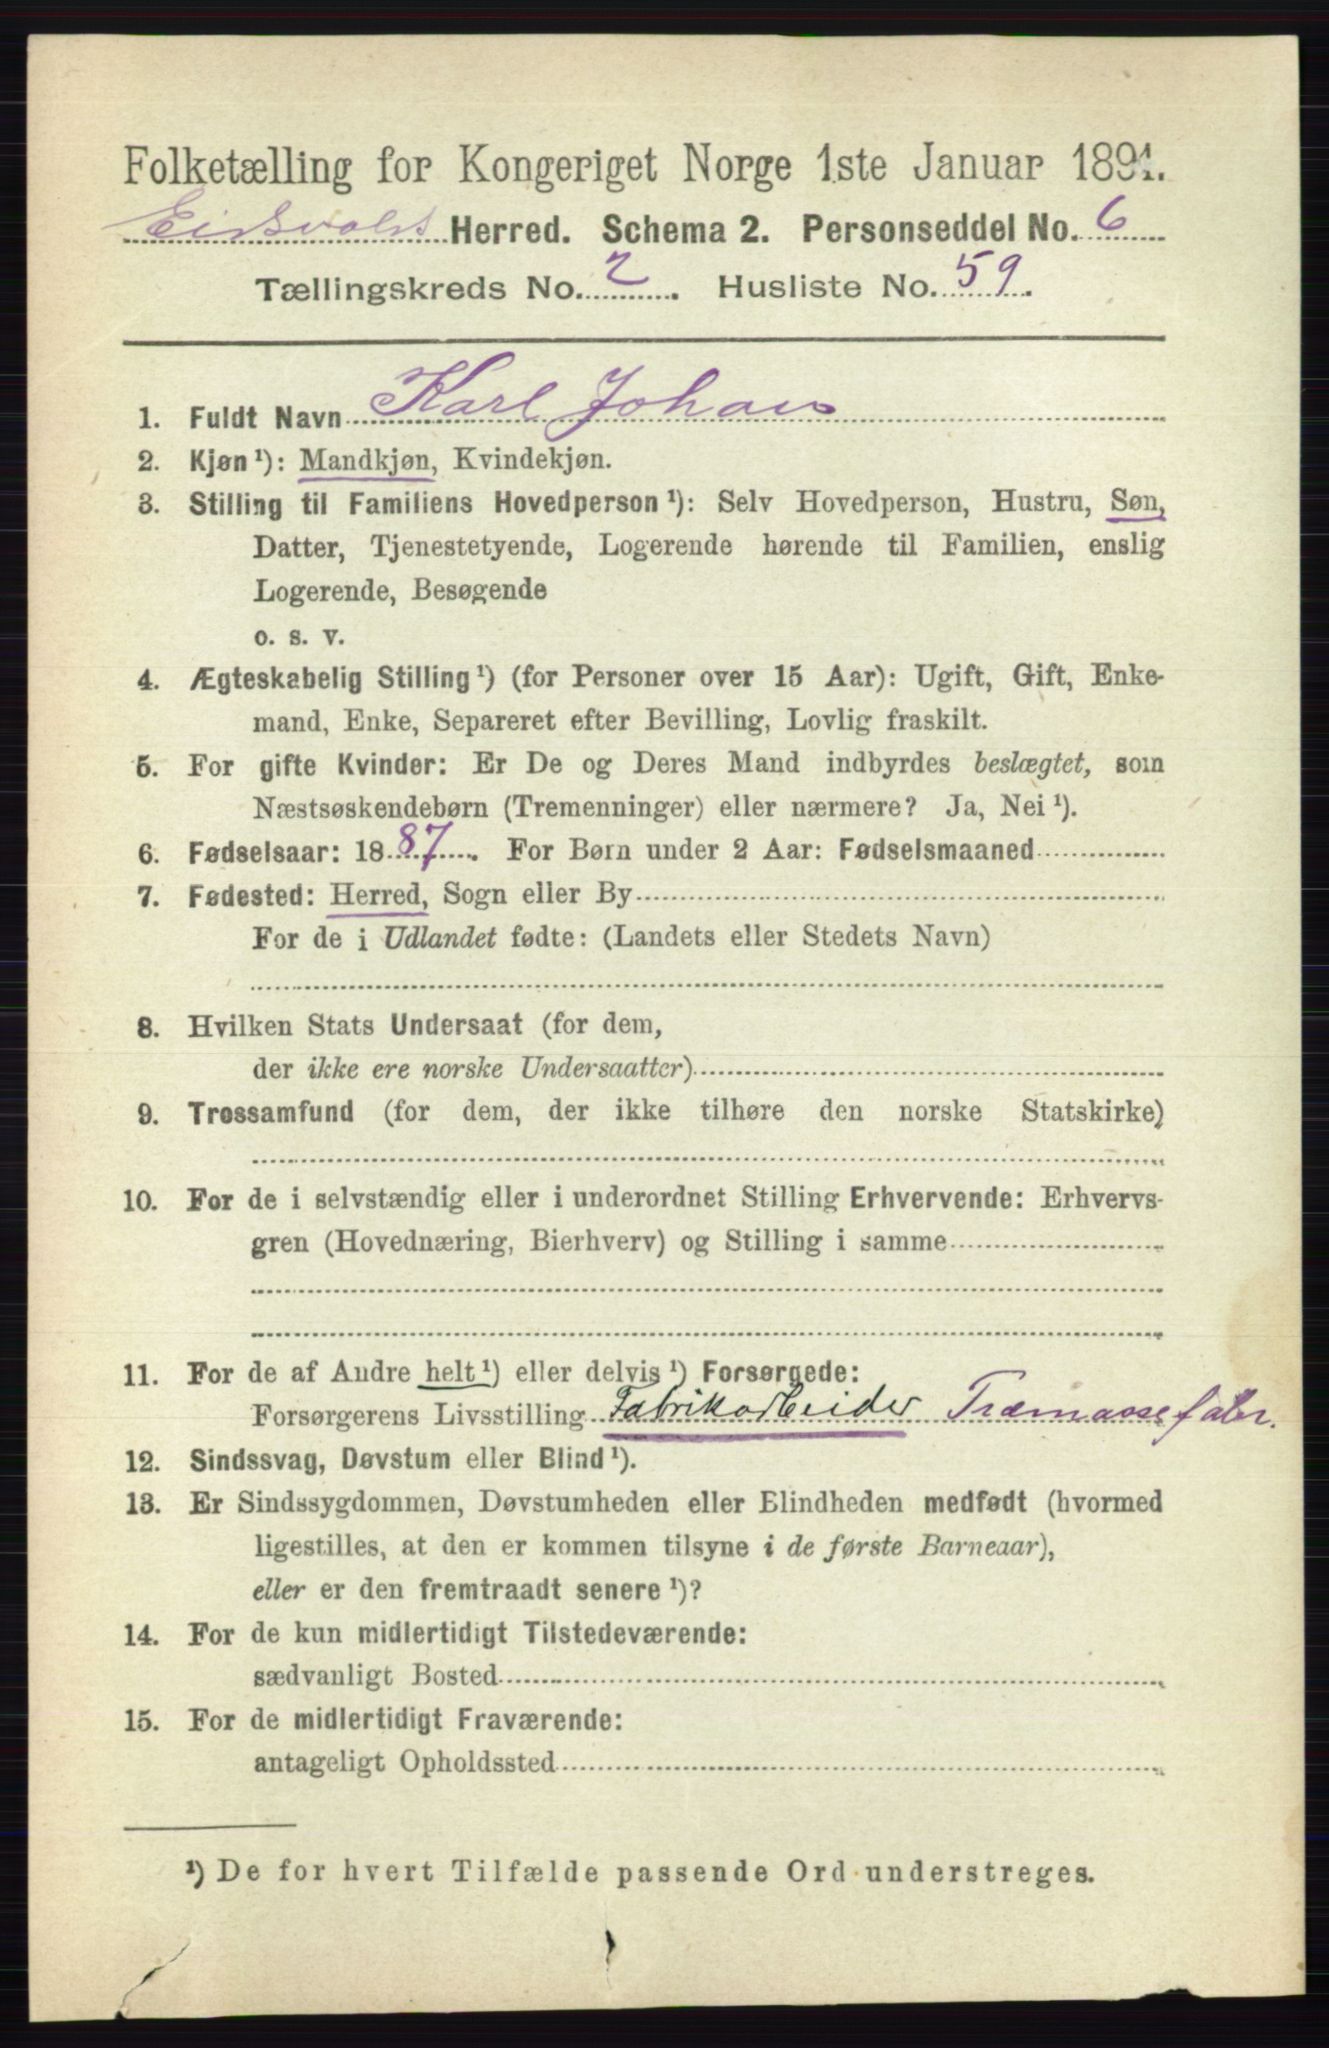 Folketælling for Kongeriget Norge 1ste Januar 1891.
Eidsvolds Herred. Schema 2. Personseddel No. 6
Tællingskreds No. 2. Husliste No. 59.
1. Fuldt Navn Karl Johan
2. Kjøn ¹): Mandkjøn, Kvindekjøn.
3. Stilling til Familiens Hovedperson ¹): Selv Hovedperson, Hustru, Søn,
Datter, Tjenestetyende, Logerende hørende til Familien, enslig
Logerende, Besøgende
o. s. v.
4. Ægteskabelig Stilling ¹) (for Personer over 15 Aar): Ugift, Gift, Enke-
mand, Enke, Separeret efter Bevilling, Lovlig fraskilt.
5. For gifte Kvinder: Er De og Deres Mand indbyrdes beslægtet, som
Næstsøskendebørn (Tremenninger) eller nærmere? Ja, Nei ¹).
6. Fødselsaar: 1887. For Børn under 2 Aar: Fødselsmaaned
7. Fødested: Herred, Sogn eller By
For de i Udlandet fødte: (Landets eller Stedets Navn)
8. Hvilken Stats Undersaat (for dem,
der ikke ere norske Undersaatter)
9. Trossamfund (for dem, der ikke tilhøre den norske Statskirke)
10. For de i selvstændig eller i underordnet Stilling Erhvervende: Erhvervs-
gren (Hovednæring, Bierhverv) og Stilling i samme
11. For de af Andre helt ¹) eller delvis ¹) Forsørgede:
Forsørgerens Livsstilling Fabrikarbeider Træmassefabr.
12. Sindssvag, Døvstum eller Blind ¹).
13. Er Sindssygdommen, Døvstumheden eller Blindheden medfødt (hvormed
ligestilles, at den er kommen tilsyne i de første Barneaar),
eller er den fremtraadt senere ¹)?
14. For de kun midlertidigt Tilstedeværende:
sædvanligt Bosted
15. For de midlertidigt Fraværende:
antageligt Opholdssted
¹) De for hvert Tilfælde passende Ord understreges.